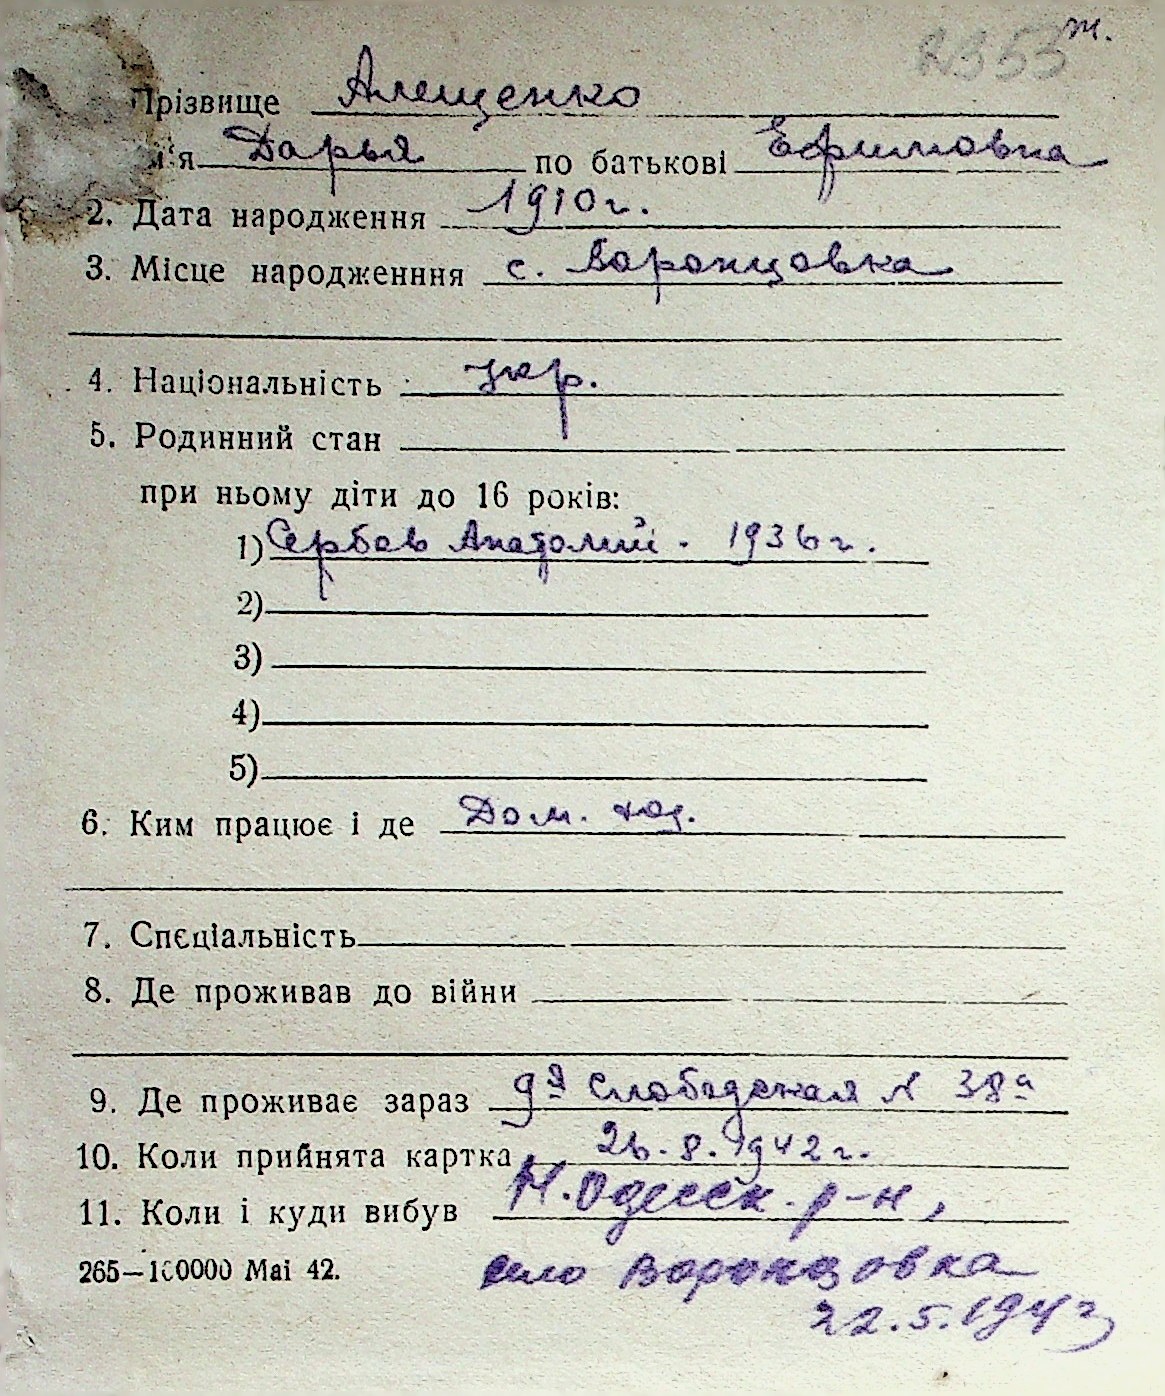 2353 ж.
Прізвище Алещенко
м'я Дарья по батькові Ефимовна
2. Дата народження 1910 г.
3. Місце народженння с. Воронцовка
4. Національність укр.
5. Родинний стан
при ньому діти до 16 років:
1) Сербов Анатолий. 1936 г.
2)
3)
4)
5)
6. Ким працює і де Дом. хоз.
7. Спєціальність
8. Де проживав до війни
9. Де проживає зараз Слободская N 38а
10. Коли прийнята картка 26.8.1942 г.
11. Коли і куди вибув Н.Одесск. р-н,
265—100000 Mai 42. село Воронцовка
22.5.1943